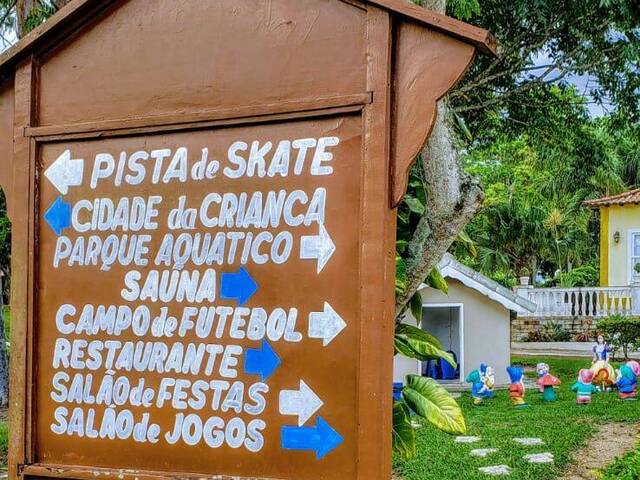 PISTA de SKATE
CIDADE da CRIANÇA
PARQUE AQUÁTICO
SAÚNA
CAMPO de FUTEBOL
RESTAURANTE
SALÃO de FESTAS
SALÃO de JOGOS